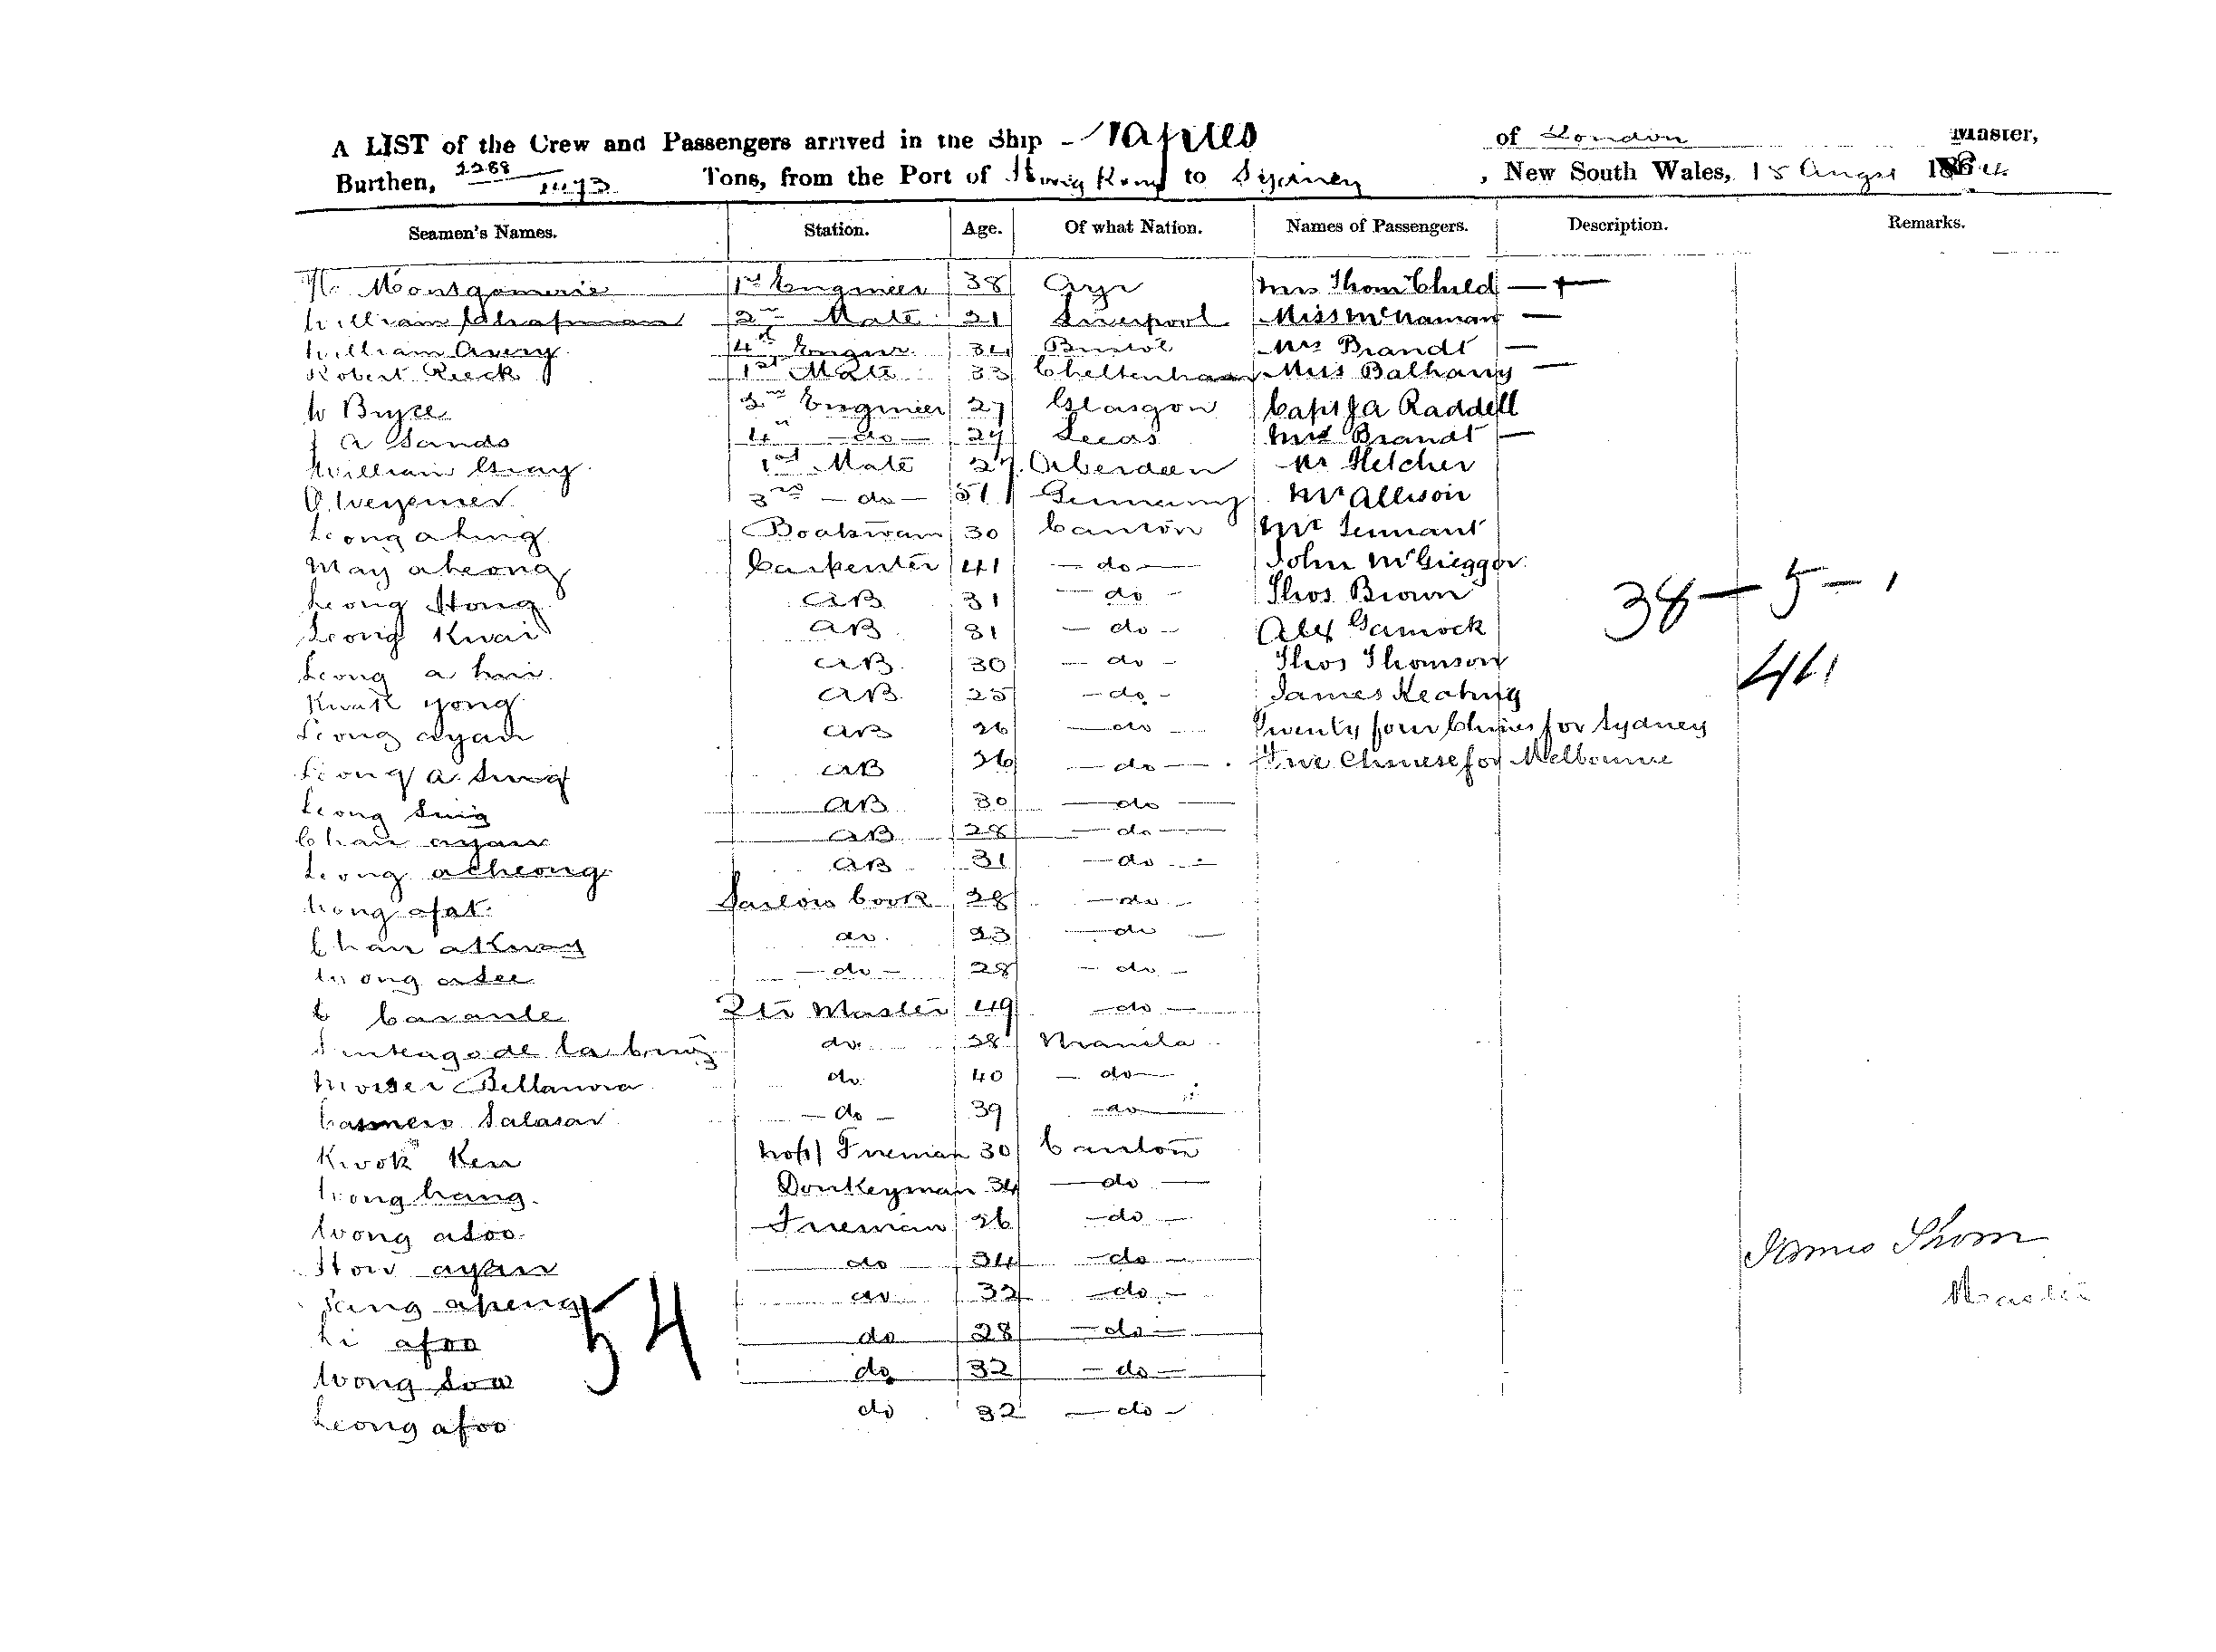 A LIST of the Crew and Passengers arrived in the Ship - of London Master,
Burthen, 2288 1473 Tons, from the Port of Hong Kong to Sydney, New South Wales, 15 Augst 188
Seamen's Names. Station. Age. Of what Nation. Names of Passengers. Description. Remarks.
Montgomerie 1st Engineer 38 Ayr Mrs Thom Child
William Chapman 2nd Mate 21 Liverpool Miss McNaman
William Avery 4th Engnr 34 Bristol Mrs Brandt
Robert Rieck 1st Mate 33 Cheltenham Miss Balhany
W Bryce 3rd Engineer 27 Glasgow Capt JA Raddell
J A Sands 4th - do - 29 Leeds Brandt
William Gray 1st Mate 27 Aberdeen Mr Fletcher
O Weyemer 3rd - do - 51 Germany Mr Allison
Leong ahing Boatswain 30 Canton Mr Tennant
May aheong Carpenter 41 - do - John McGreggor
Leong Hong AB 31 - do - Thos Brown
38 - 5 - 1
Leong Kwai AB 31 - do - Alex Garnock
Leong a hui AB 30 - do - Thos Thomson
44
Kwak yong AB 25 - do - James Keating
Leong ayan AB 26 - do - Twenty four Chines for Sydney
Leong a Sing AB 26 - do - Five Chinese for Melbourne
Leong Sing AB 30 - do -
Chan ayan AB 28 - do -
Leong acheong AB 31 - do -
Wong afat Sailors Cook 28 - do -
Chan akway do 23 - do -
Wong asee - do - 28 - do -
Cavante Qtr Master 49 - do -
Sinteago de la Cruz do 38 Manila
Bellanova do 40 - do -
Casmero Salasar - do - 39 - do -
Kwok Ken No 1 Fireman 30 Canton
Wong hang Donkeyman 34 - do -
Wong asoo Fireman 26 - do -
How ayan do 34 - do -
James Thom
Master
apeng do 32 - do -
Li afoo do 28 - do -
54
Wong Sow do 32 - do -
Leong afoo do 32 - do -